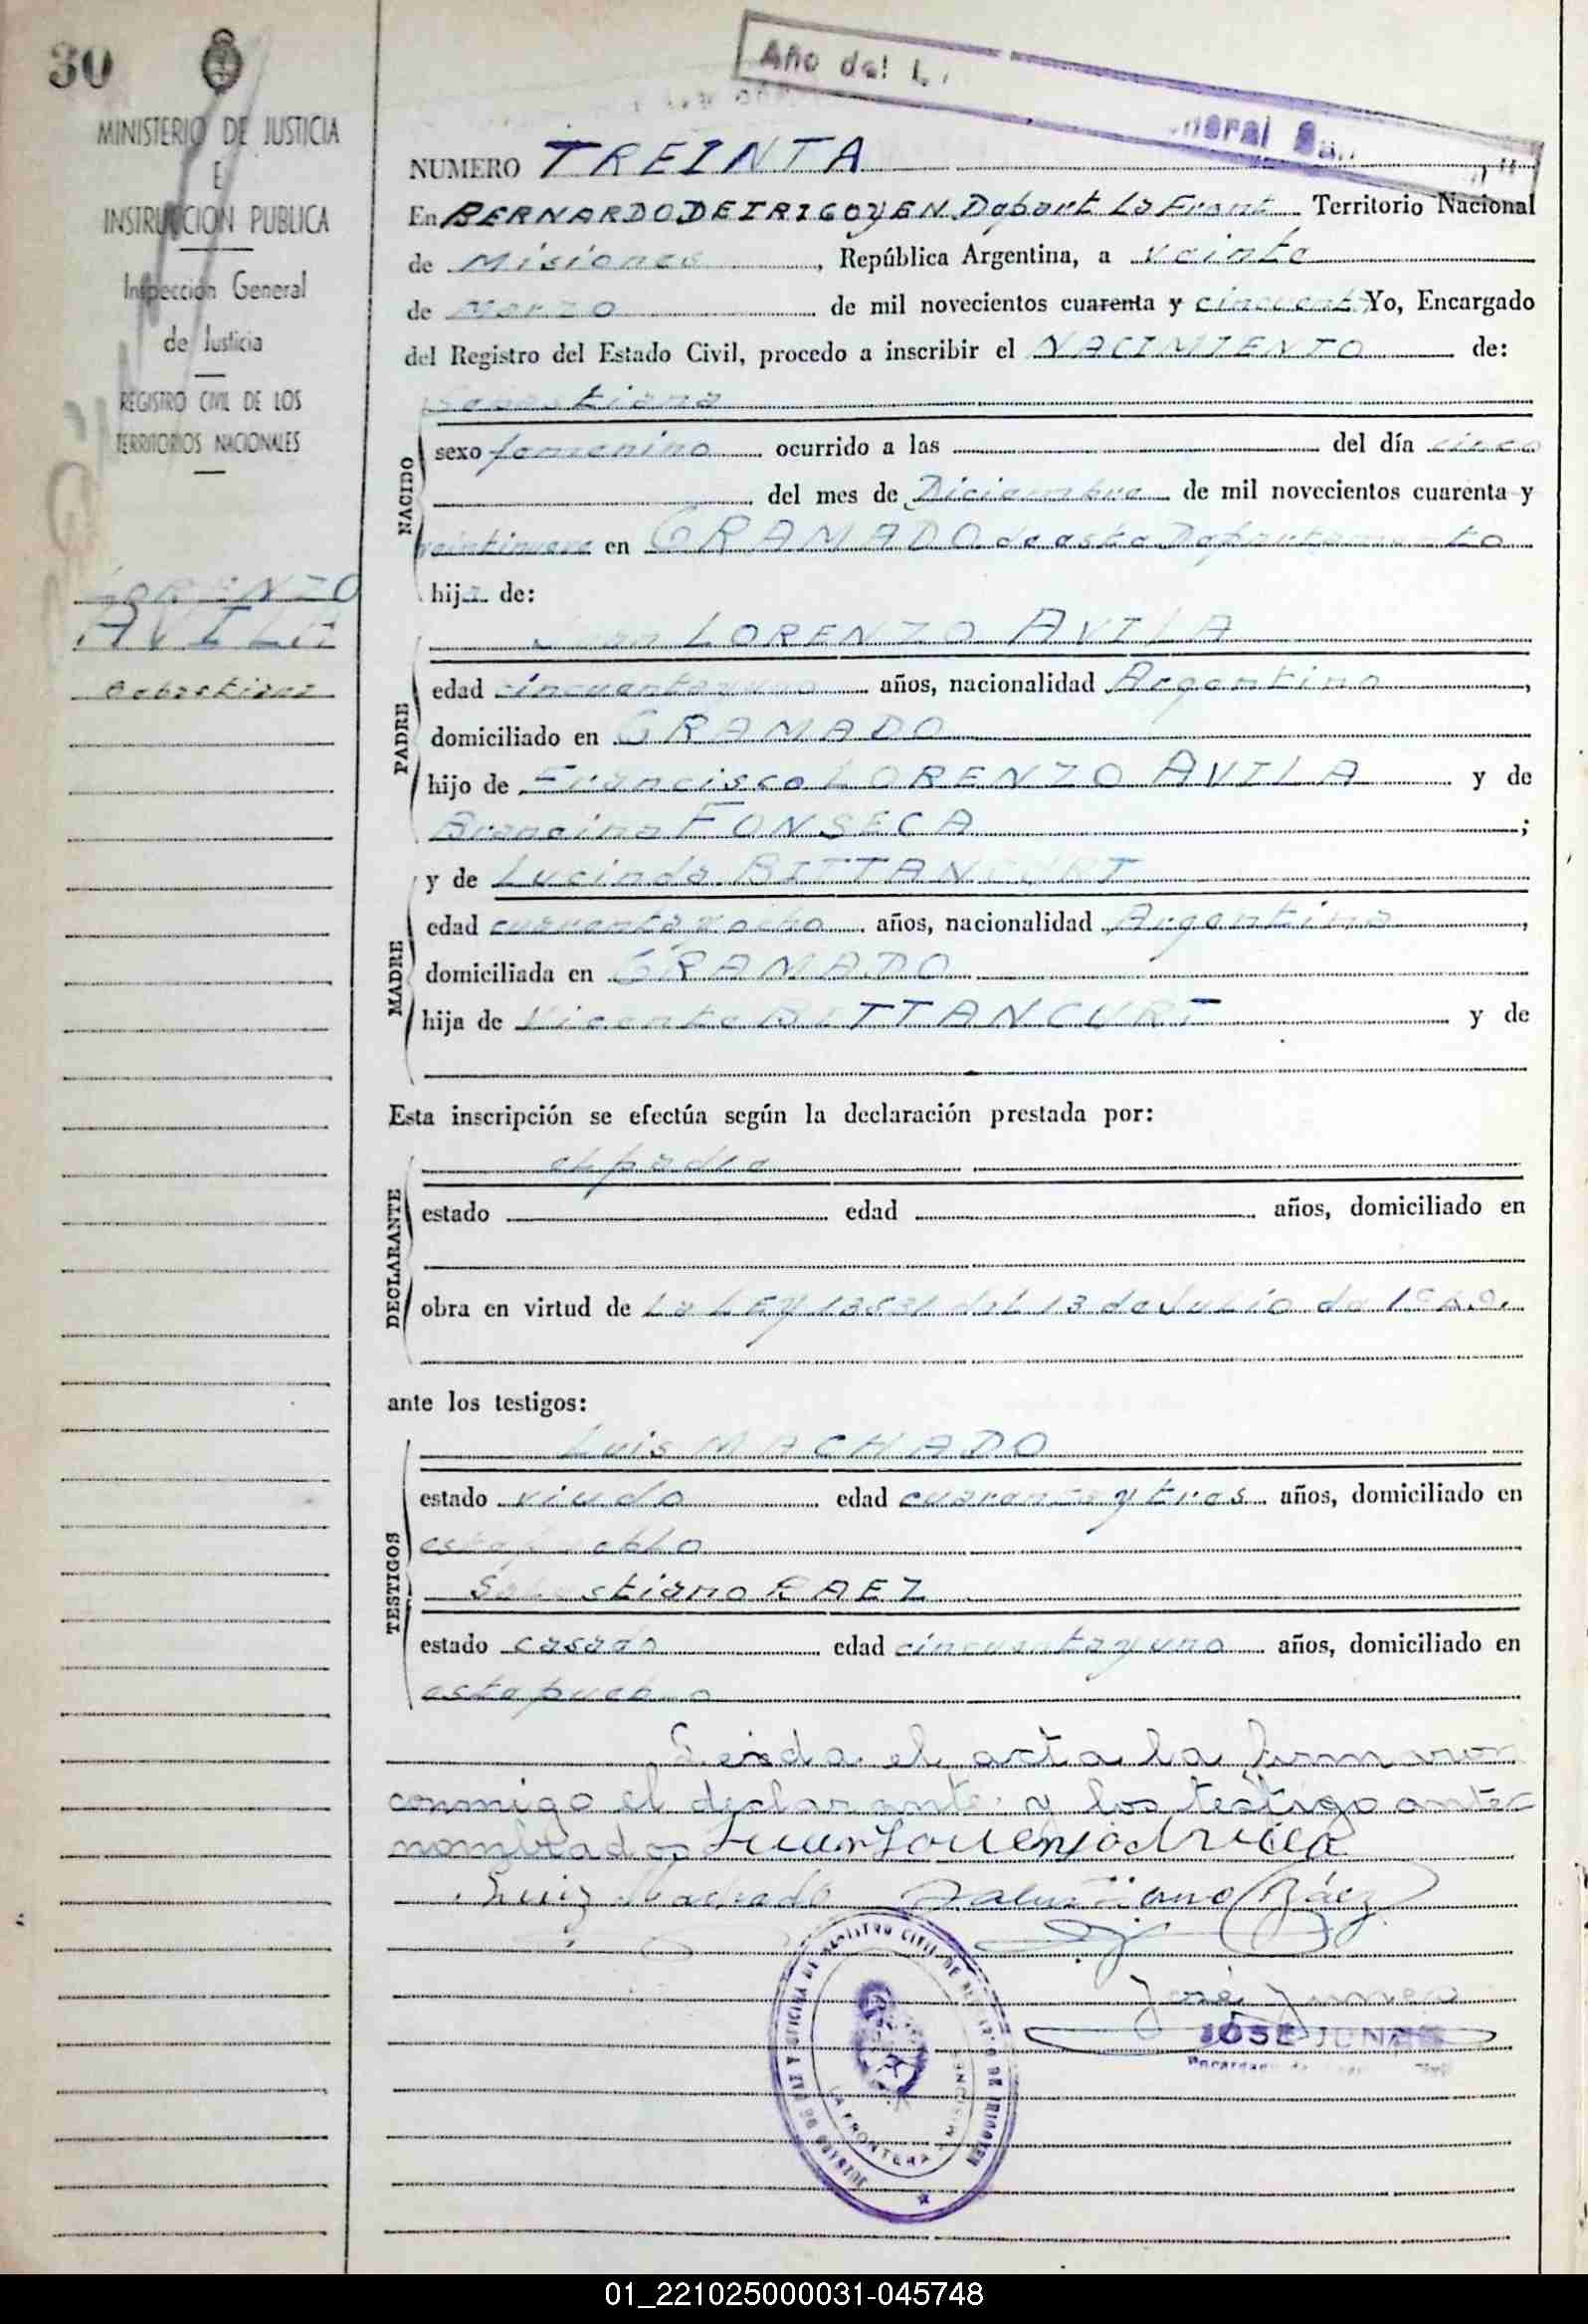 30
MINISTERIO DE JUSTICIA
E
INSTRUCCION PUBLICA
Inspección General
de Justicia
REGISTRO CIVIL DE LOS
TERRITORIOS NACIONALES
LORENZO
AVILA
Sebastiana
Año del L
neral San
NUMERO TREINTA
En BERNARDO DE IRIGOYEN Depart La Front Territorio Nacional
de Misiones, República Argentina, a veinte
de Marzo de mil novecientos cuarenta y cincuenta Yo, Encargado
del Registro del Estado Civil, procedo a inscribir el NACIMIENTO de:
Sebastiana
NACIDO
sexo femenino ocurrido a las del día cinco
del mes de Diciembre de mil novecientos cuarenta y
en GRAMADO de este Departamento
hija de:
PADRE
Juan LORENZO AVILA
edad cincuenta y uno años, nacionalidad Argentino,
domiciliado en GRAMADO
hijo de Francisco LORENZO AVILA y de
FONSECA;
MADRE
y de Lucinda BITTANCURT
edad cuarenta y ocho años, nacionalidad Argentina,
domiciliada en GRAMADO
hija de Vicente BITTANCURT y de
Esta inscripción se efectúa según la declaración prestada por:
DECLARANTE
el padre
estado edad años, domiciliado en
obra en virtud de La LEY 13531 del 13 de Julio de 1949.
ante los testigos:
TESTIGOS
Luis MACHADO
estado viudo edad cuarenta y tres años, domiciliado en
este pueblo
BAEZ
estado casado edad cincuenta y uno años, domiciliado en
este pueblo
Leida el acta la firmaron
conmigo el declarante y los testigo ante-
nombrados Juan Lorenzo Avila
Luiz Machado Báez
José Junes
JOSE JUNES
Encargado de
JUZGADO DE PAZ Y OFICINA DE REGISTRO CIVIL DE BERNARDO DE IRIGOYEN
LA FRONTERA MISIONES
01_221025000031-045748